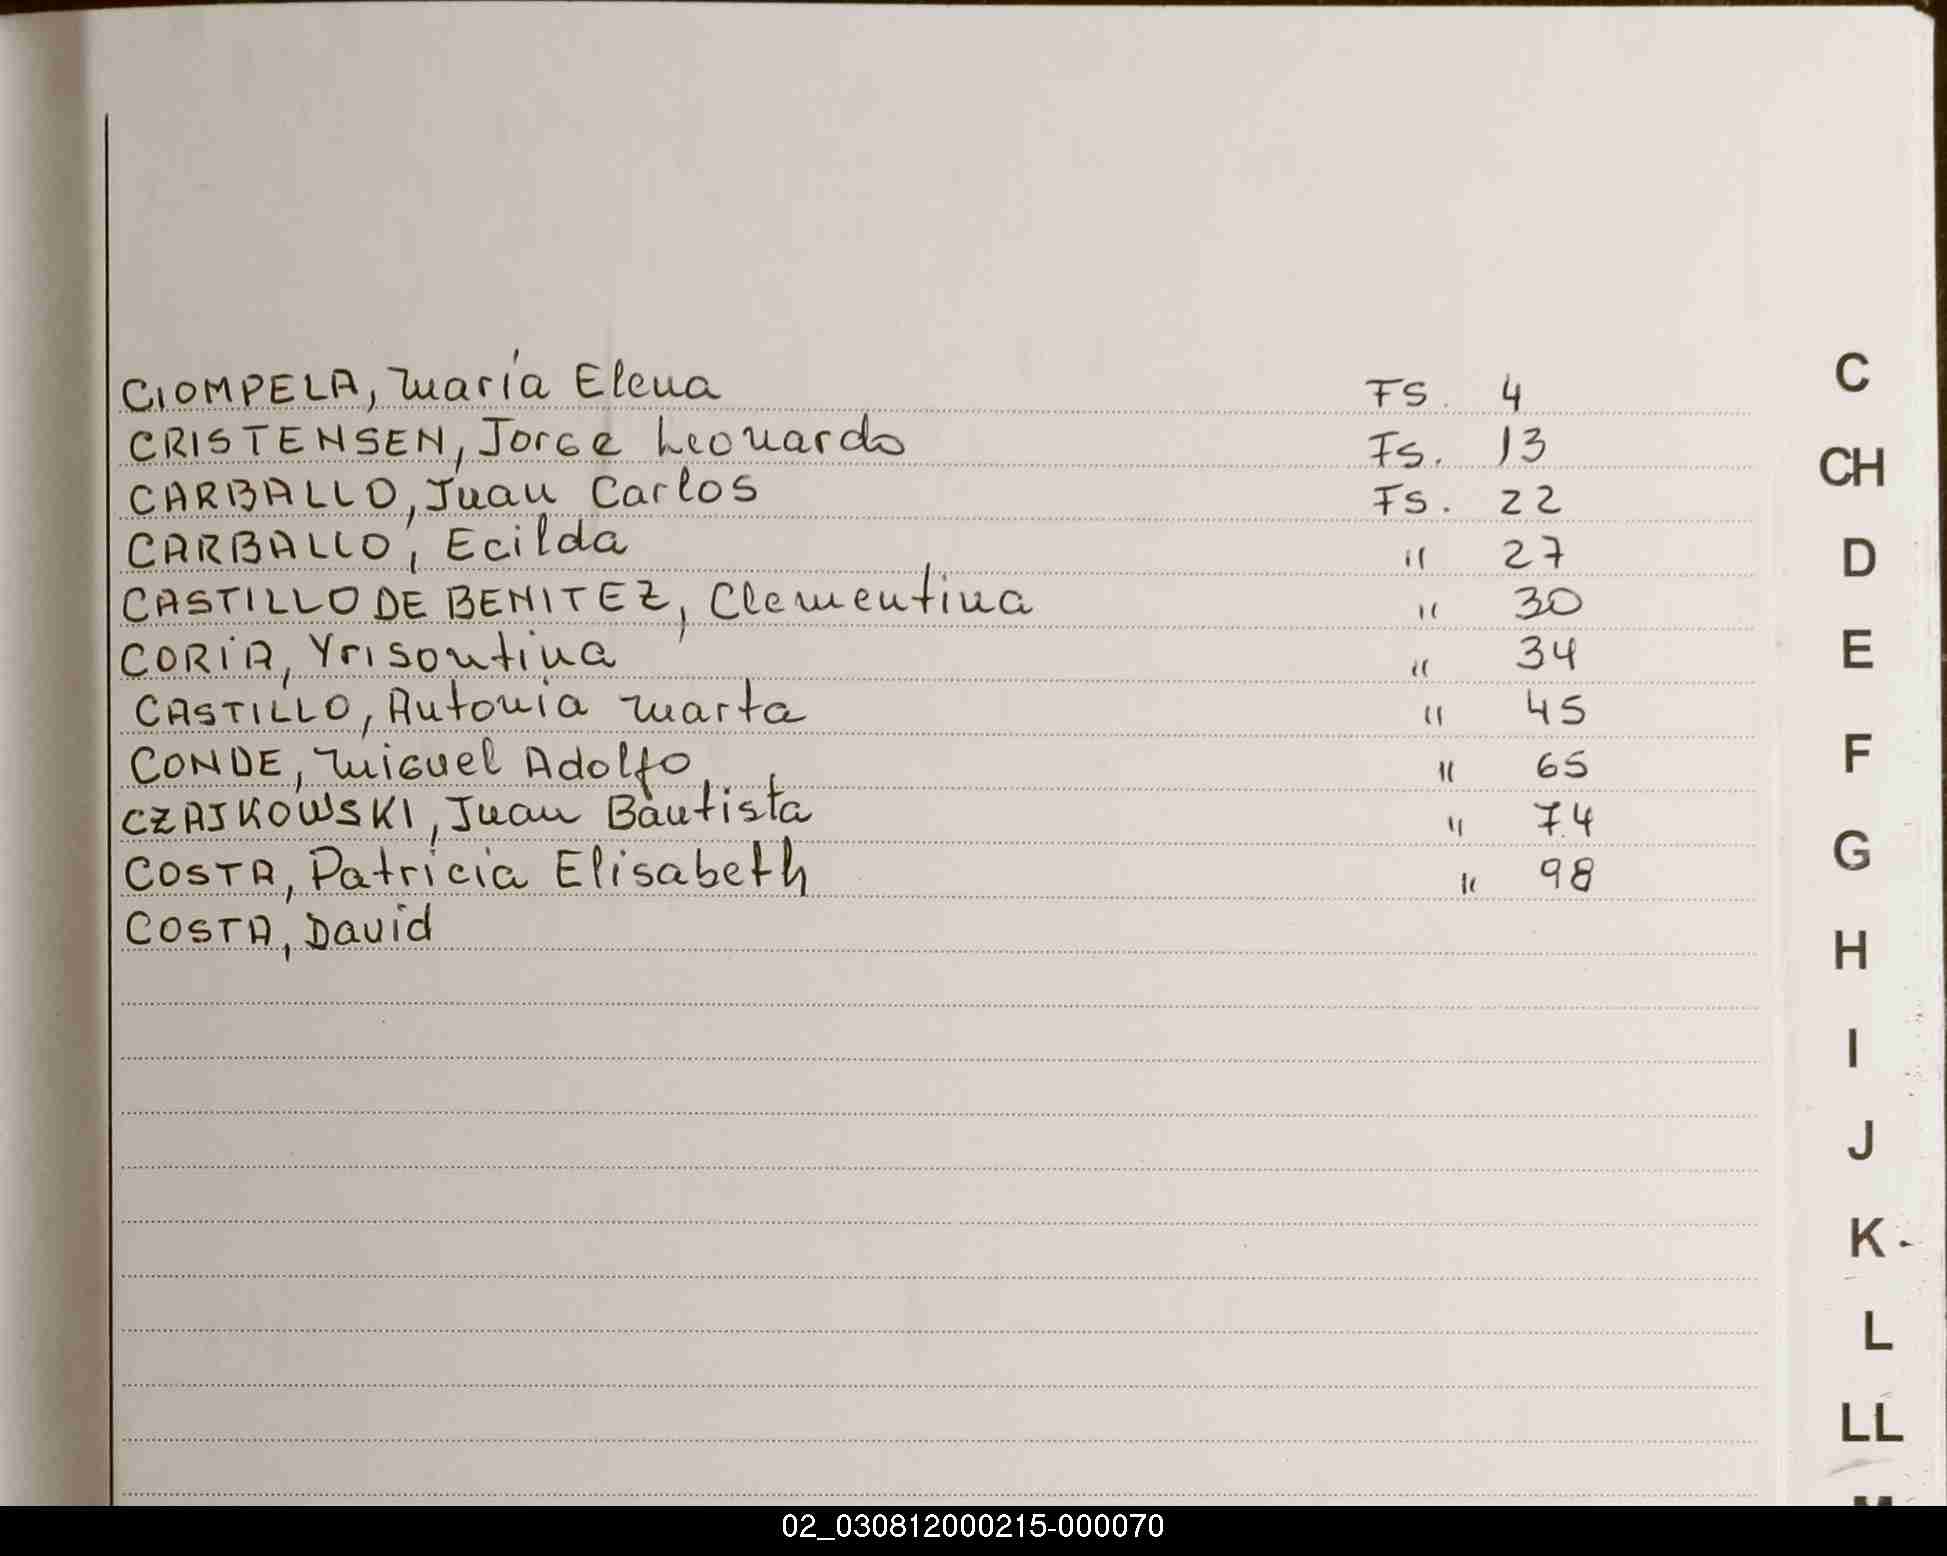 CIOMPELA, María Elena Fs. 4
CRISTENSEN, Jorge Leonardo Fs. 13
CARBALLO, Juan Carlos Fs. 22
CARBALLO, Ecilda " 27
CASTILLO DE BENITEZ, Clementina " 30
CORIA, Yrisontina " 34
CASTILLO, Antonia Marta " 45
CONDE, Miguel Adolfo " 65
CZAJKOWSKI, Juan Bautista " 74
COSTA, Patricia Elisabeth " 98
COSTA, David
C
CH
D
E
F
G
H
I
J
K
L
LL
M
02_030812000215-000070